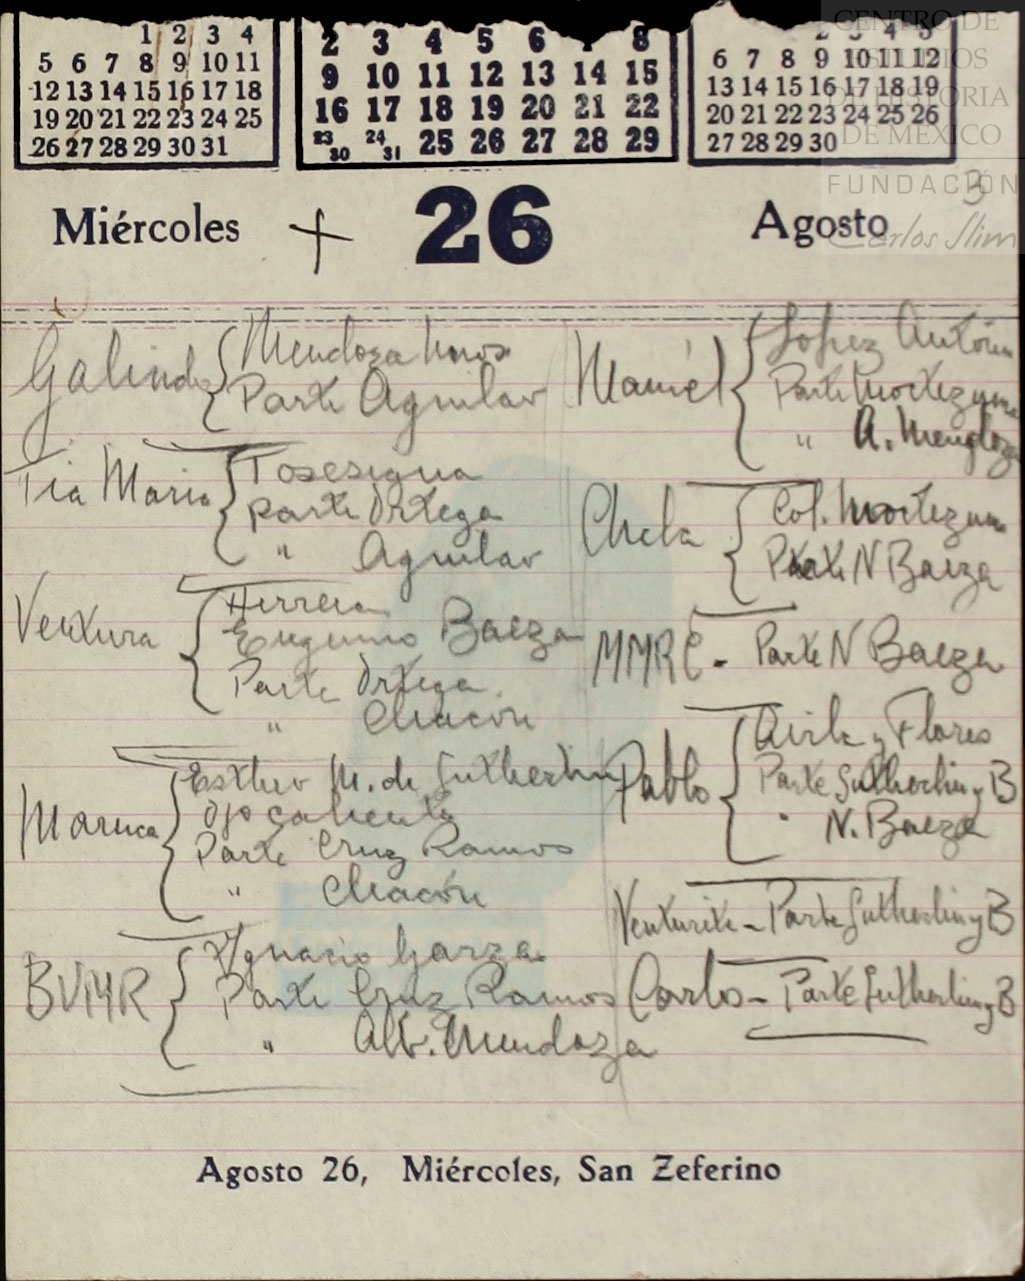 1 2 3 4
5 6 7 8 9 10 11
12 13 14 15 16 17 18
19 20 21 22 23 24 25
26 27 28 29 30 31
2 3 4 5 6 7 8
9 10 11 12 13 14 15
16 17 18 19 20 21 22
23/30 24/31 25 26 27 28 29
2 3 4 5
6 7 8 9 10 11 12
13 14 15 16 17 18 19
20 21 22 23 24 25 26
27 28 29 30
CENTRO DE
ESTUDIOS
DE HISTORIA
DE MÉXICO
FUNDACIÓN
Carlos Slim
3
Miércoles + 26 Agosto
Galindo { Mendoza Hnos
Parte Aguilar
Tia Maria { Tosesigua
Parte Ortega
" Aguilar
Ventura { Herrera
Eugenio Baeza
Parte Ortega
" Chacón
Maruca { Esther M. de Sutherlin
Ojo Caliente
Parte Cruz Ramos
" Chacón
BVMR { Ygnacio Garza
Parte Cruz Ramos
" Alb. Mendoza
Manuel { Lopez Antonio
Parte Moctezuma
" A. Mendoza
Chela { Col. Moctezuma
Parte N Baeza
MMRC - Parte N Baeza
Pablo { Avila y Flores
Parte Sutherlin y B
" N. Baeza
Venturita - Parte Sutherlin y B
Carlos - Parte Sutherlin y B
Agosto 26, Miércoles, San Zeferino